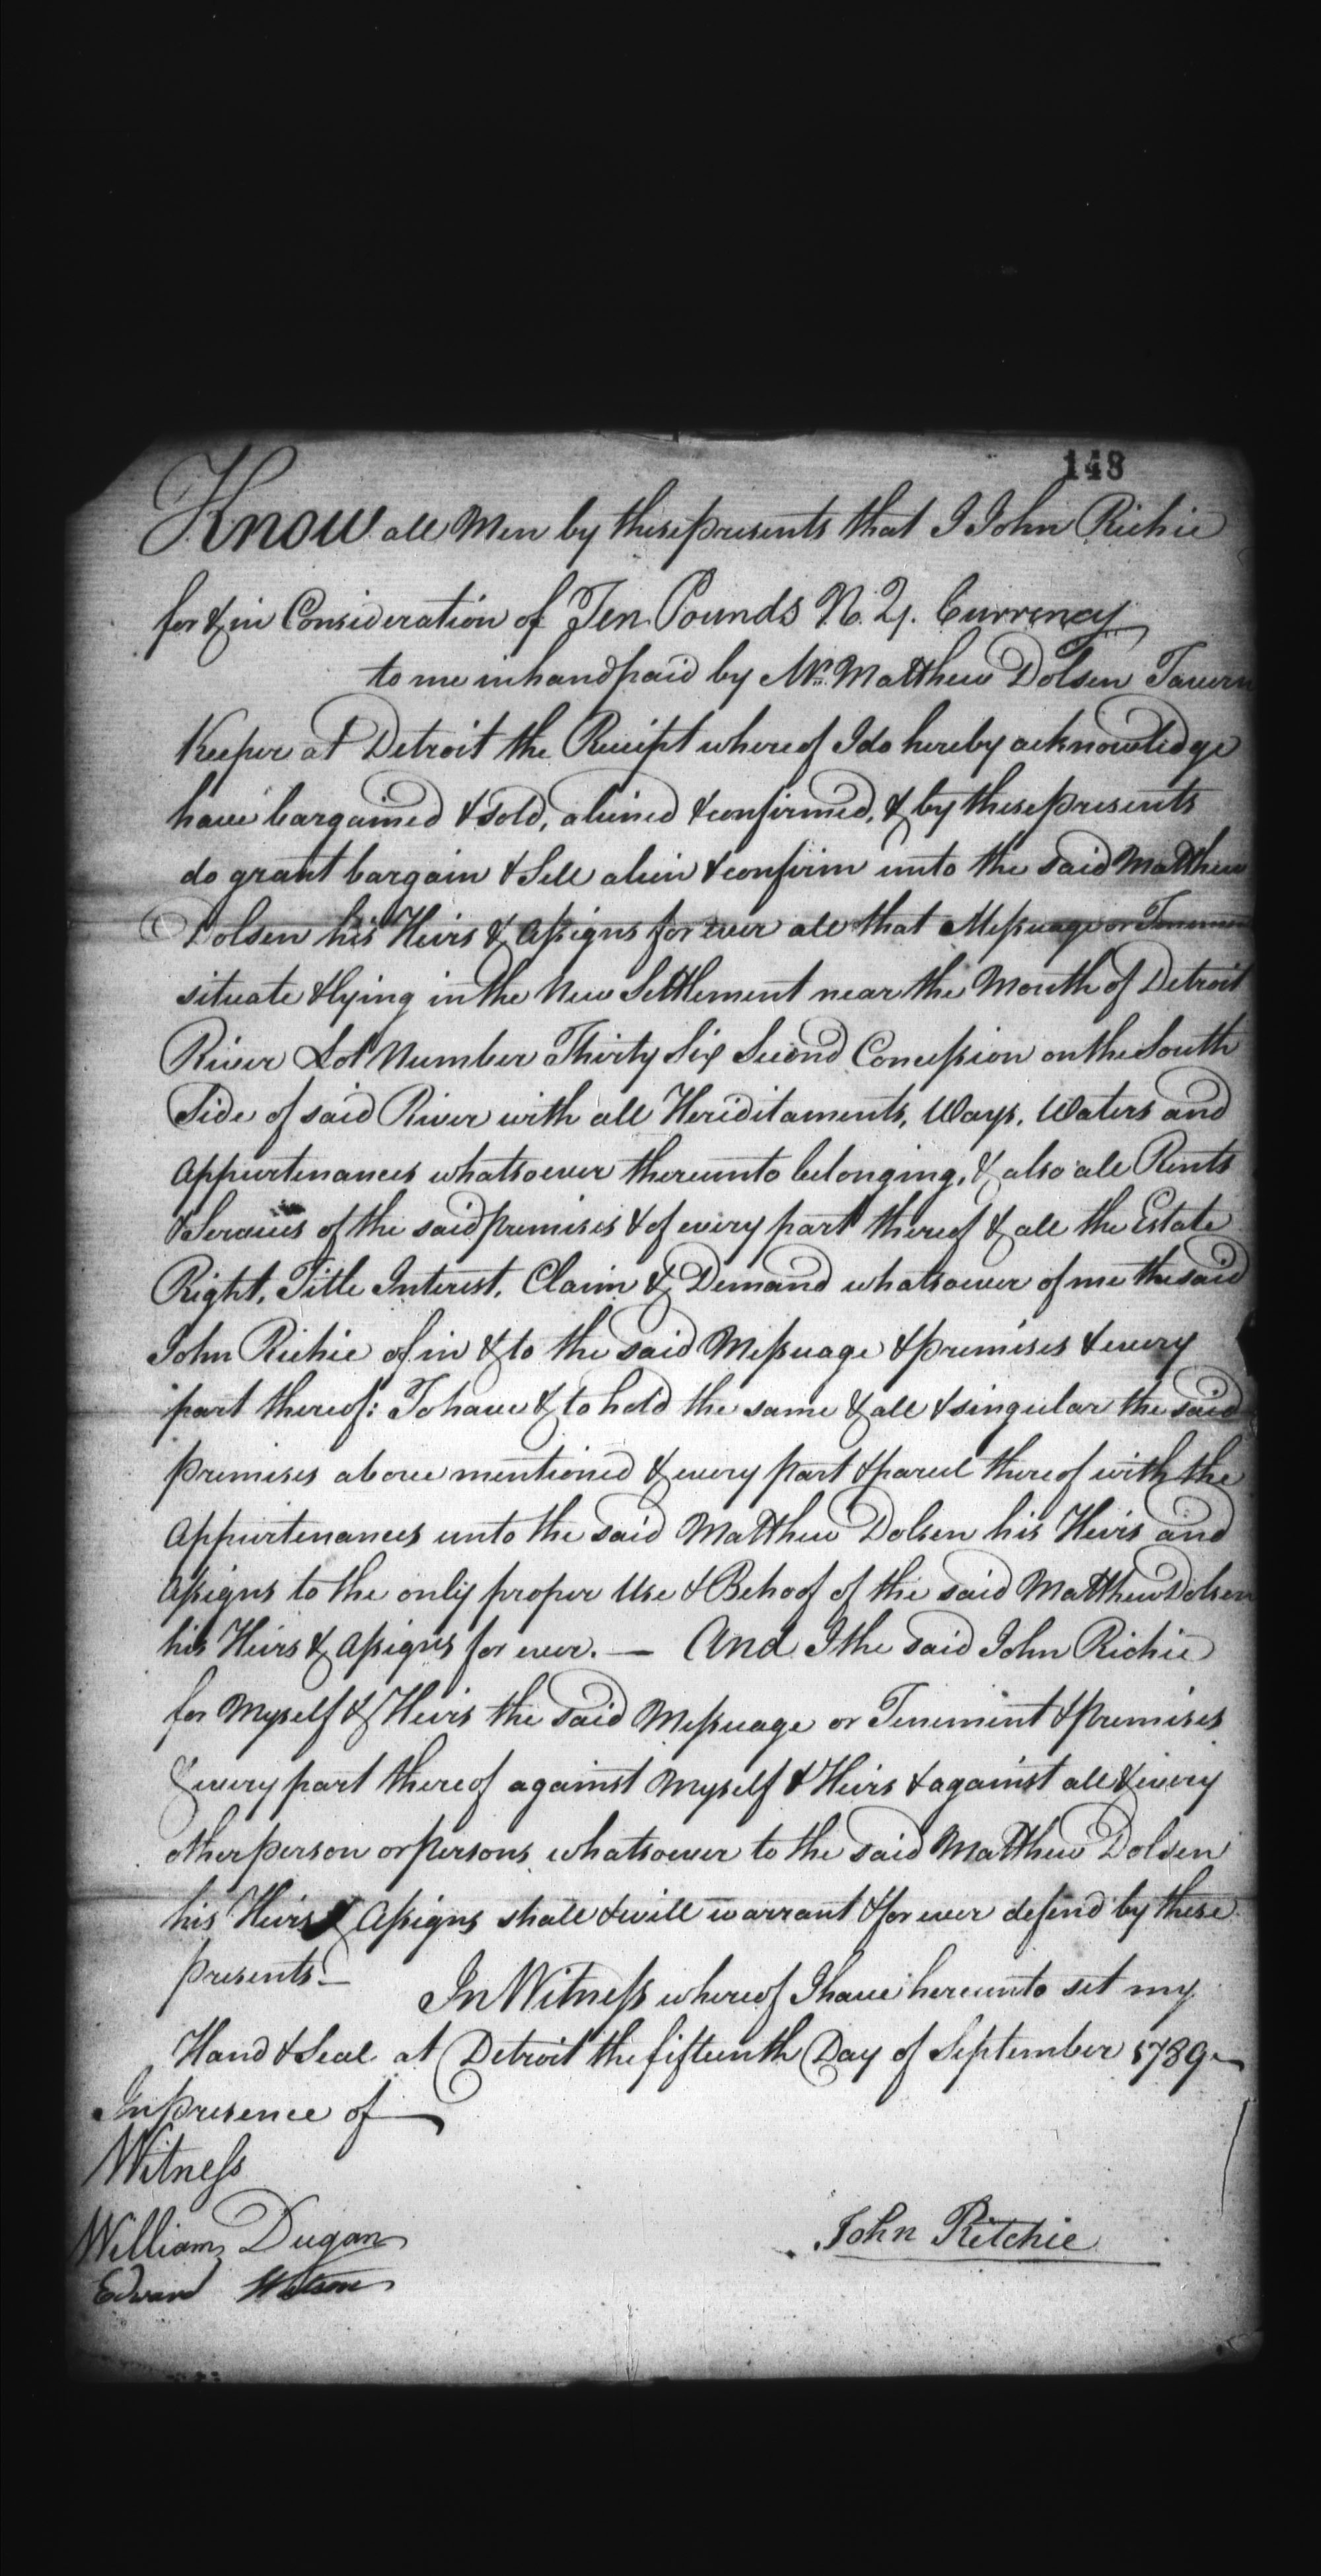 148
Know all Men by these presents that I John Richie
for & in Consideration of Ten Pounds N. Y. Currency
to me in hand paid by Mr. Matthew Dolsen Tavern
Keeper at Detroit the Receipt whereof I do hereby acknowledge
have bargained & sold, aliened & confirmed, & by these presents
do grant bargain & Sell alien & confirm unto the said Matthew
Dolsen his Heirs & Assigns for ever all that Messuage or Tenemen
situate & lying in the New Settlement near the Mouth of Detroit
River Lot Number Thirty Six Second Concession on the South
Side of said River with all Heriditaments, Ways, Waters and
Appurtenances whatsoever thereunto belonging, & also all Rents
& Services of the said premises & of every part thereof & all the Estate
Right, Title Interest, Claim & Demand whatsoever of me the said
John Richie of in & to the said Messuage & premises & every
part thereof: To have & to hold the same & all & singular the said
premises above mentioned & every part & parcel thereof with the
Appurtenances unto the said Matthew Dolsen his Heirs and
Assigns to the only proper Use & Behoof of the said Matthew Dolsen
his Heirs & Assigns for ever. — And I the said John Richie
for Myself & Heirs the said Messuage or Tenement & premises
& every part thereof against Myself & Heirs & against all & every
other person or persons whatsoever to the said Matthew Dolsen
his Heirs & Assigns shall & will warrant & for ever defend by these
presents —
In Witness whereof I have hereunto set my
Hand & Seal at Detroit the fifteenth Day of September 1789
In presence of
Witness
William Dugan
John Ritchie
Edward Watson